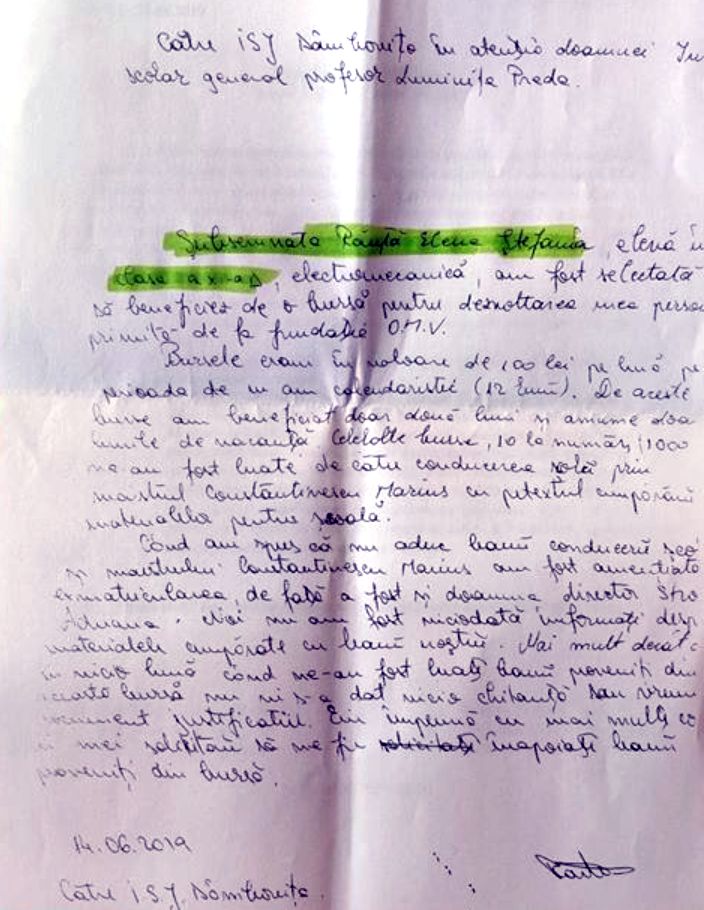 Către ISJ Dâmbovița în atenția doamnei In
școlar general profesor Luminița Preda.
Subsemnata Răuță Elena Ștefania, elevă în
clasa a XI-a D, electromecanică, am fost selectată
să beneficiez de o bursă pentru dezvoltarea mea perso
primită de la fundația O.M.V.
Bursele erau în valoare de 100 lei pe lună pe
prioada de un an calendaristic (12 luni). De aceste
burse am beneficiat doar două luni și anume doa
lunile de vacanță. Celelalte burse, 10 la număr, (1000
ne-au fost luate de către conducerea școlă prin
maistrul Constantinescu Marius cu pretextul cumpărării
materialelor pentru școală.
Când am spus că nu aduc banii conducerii șco
și maistrului Constantinescu Marius am fost amenințată
exmatricularea, de față a fost și doamna director Stro
Adriana. Noi nu am fost niciodată informați desp
materialele cumpărate cu banii noștrii. Mai mult decât
în nicio lună când ne-au fost luați banii proveniți din
această bursă nu ni s-a dat nicio chitanță sau vreun
document justificativ. Eu împreună cu mai mulți co
ai mei solicităm să ne fie solicitați înapoiați banii
proveniți din bursă.
14.06.2019
Către I.S.J. Dâmbovița.